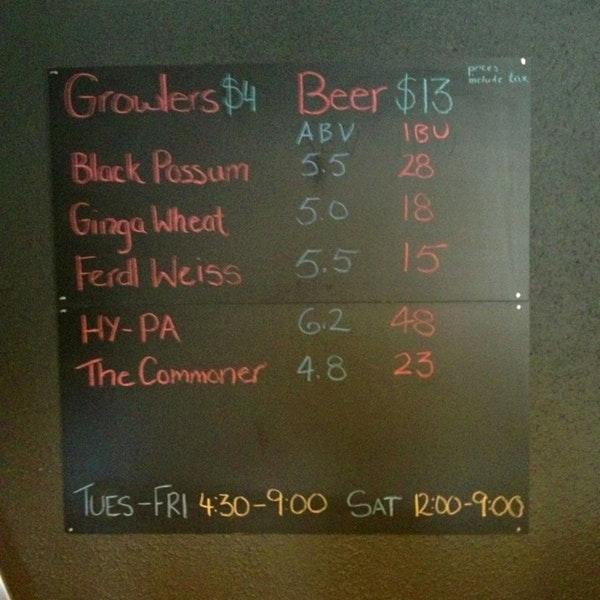 Growlers $4 Beer $13 prices include tax
ABV IBU
Black Possum 5.5 28
Ginga Wheat 5.0 18
Ferdl Weiss 5.5 15
HY-PA 6.2 48
The Commoner 4.8 23
TUES-FRI 4:30-9:00 SAT 12:00-9:00